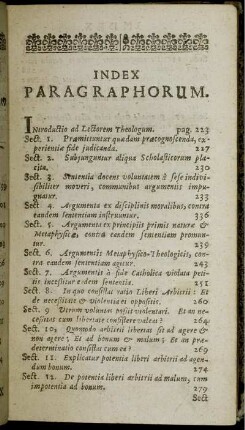 INDEX
PARAGRAPHORUM.
INtroductio ad Lectorem Theologum. pag. 223
Sect. 1. Præmittuntur quædam præcognoscenda, ex-
perientia fide judicanda. 227
Sect. 2. Subjunguntur aliqua Scholasticorum pla-
cita. 230
Sect. 3. Sententia docens voluntatem à sese indivi-
sibiliter moveri, communibus argumentis impu-
gnatur. 233
Sect 4. Argumenta ex disciplinis moralibus, contra
eandem sententiam instruuntur. 336
Sect. 5. Argumenta ex principiis primis naturæ &
Metaphysicæ, contra eandem sententiam promun-
tur. 239
Sect. 6. Argumentis Metaphysico-Theologicis, con-
tra eandem sententiam agitur. 243
Sect. 7. Argumentis à fide Catholica violata peti-
tis incessitur eadem sententia. 251
Sect. 8. In quo consistat ratio Liberi Arbitrii: Et
de necessitate & violentia ei oppositis. 260
Sect. 9 Utrum voluntas possit violentari. Et an ne-
cessitas cum libertate consistere valeat? 264
Sect. 10, Quomodo arbitrii libertas sit ad agere &
non agere; Et ad bonum & malum; Et an præ-
determinatio consistat cum ea? 269
Sect. 11. Explicatur potentia liberi arbitrii ad agen-
dum bonum. 274
Sect. 12. De potentia liberi arbitrii ad malum, tum
impotentia ad bonum. 279
Sect